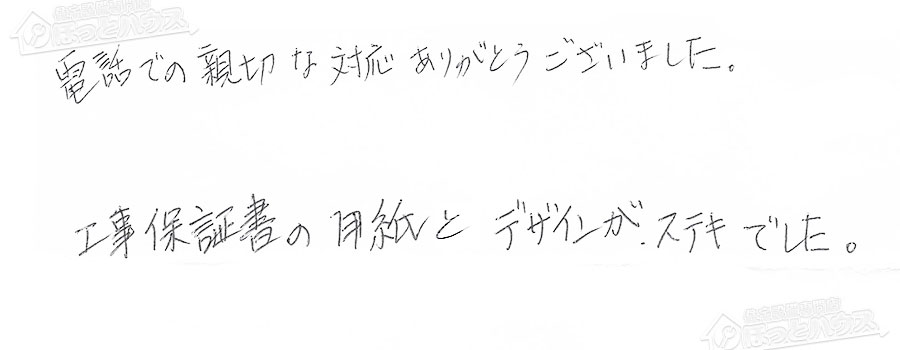 ほっとハウス
電話での親切な対応ありがとうございました。
工事保証書の用紙とデザインが、ステキでした。
ほっとハウス